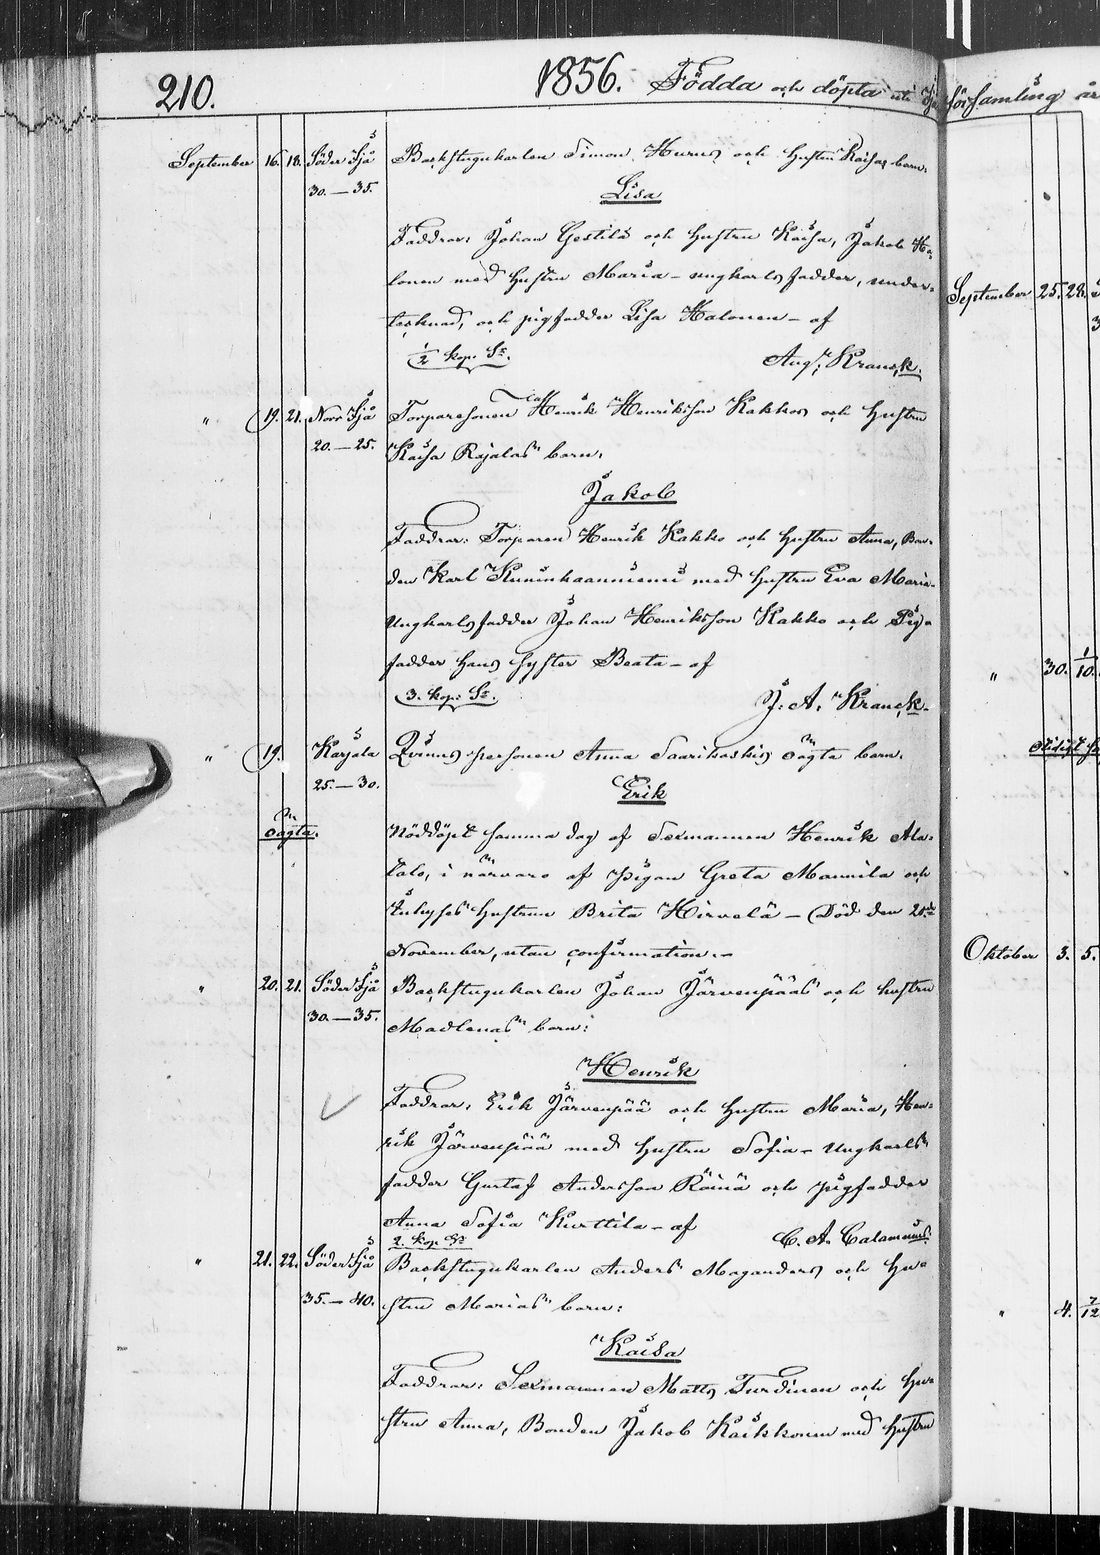 210.
1856. Födda och döpta uti
September 16. 18. Söder Sjå Backstugukarlen Simon Hurus och hustru Kaisas barn:
30.—35.
Lisa
Faddrar: Johan Gestilä och hustru Kaisa, Jakob Ha-
lonen med hustru Maria – ungkarlsfadder, under-
tecknad, och pigfadder Lisa Halonen – af
1/2 kop. Sr.
Aug. Kranck.
" 19. 21. Norr Sjå Torparesonen Henrik Henriksson Kakkos och hustru
20.—25. Kaisa Rajalas barn:
Jakob
Faddrar: Torparen Henrik Kakko och hustru Anna, Bon-
den Karl Kuninkaanniemi med hustru Eva Maria –
Ungkarlsfadder Johan Henriksson Kakko och Pig-
fadder hans syster Beata – af
3. kop: Sr.
J. A. Kranck
" 19. Karjala Qvinnspersonen Anna Saarikoskis oägta barn.
25.—30.
Erik
oägta.
Nöddöpt samma dag af Sexmannen Henrik Ala-
talo, i närvaro af pigan Greta Mannila och
Inhyses hustrun Brita Hirvelä – (Död den 21
November, utan confirmation. –
" 20. 21. Söder Sjå Backstugukarlen Johan Järvenpääs och hustru
30.—35. Madlenas barn:
Henrik
Faddrar: Erik Järvenpää och hustru Maria, Hen-
rik Järvenpää med hustru Sofia – Ungkarls
fadder Gustaf Andersson Räinä och pigfadder
Anna Sofia Kurttila – af
2. kop Sr
C. A. Calamnius.
" 21. 22. Söder Sjå Backstugukarlen Anders Maganders och hu-
35.—40. stru Marias barn:
Kaisa
Faddrar: Sexmannen Matts Turdinen och hu-
stru Anna, Bonden Jakob Kaikkonen med hustru
församling år
September 25. 28.
" 30. 1/10.
Oktober 3. 5.
" 4. 7/12